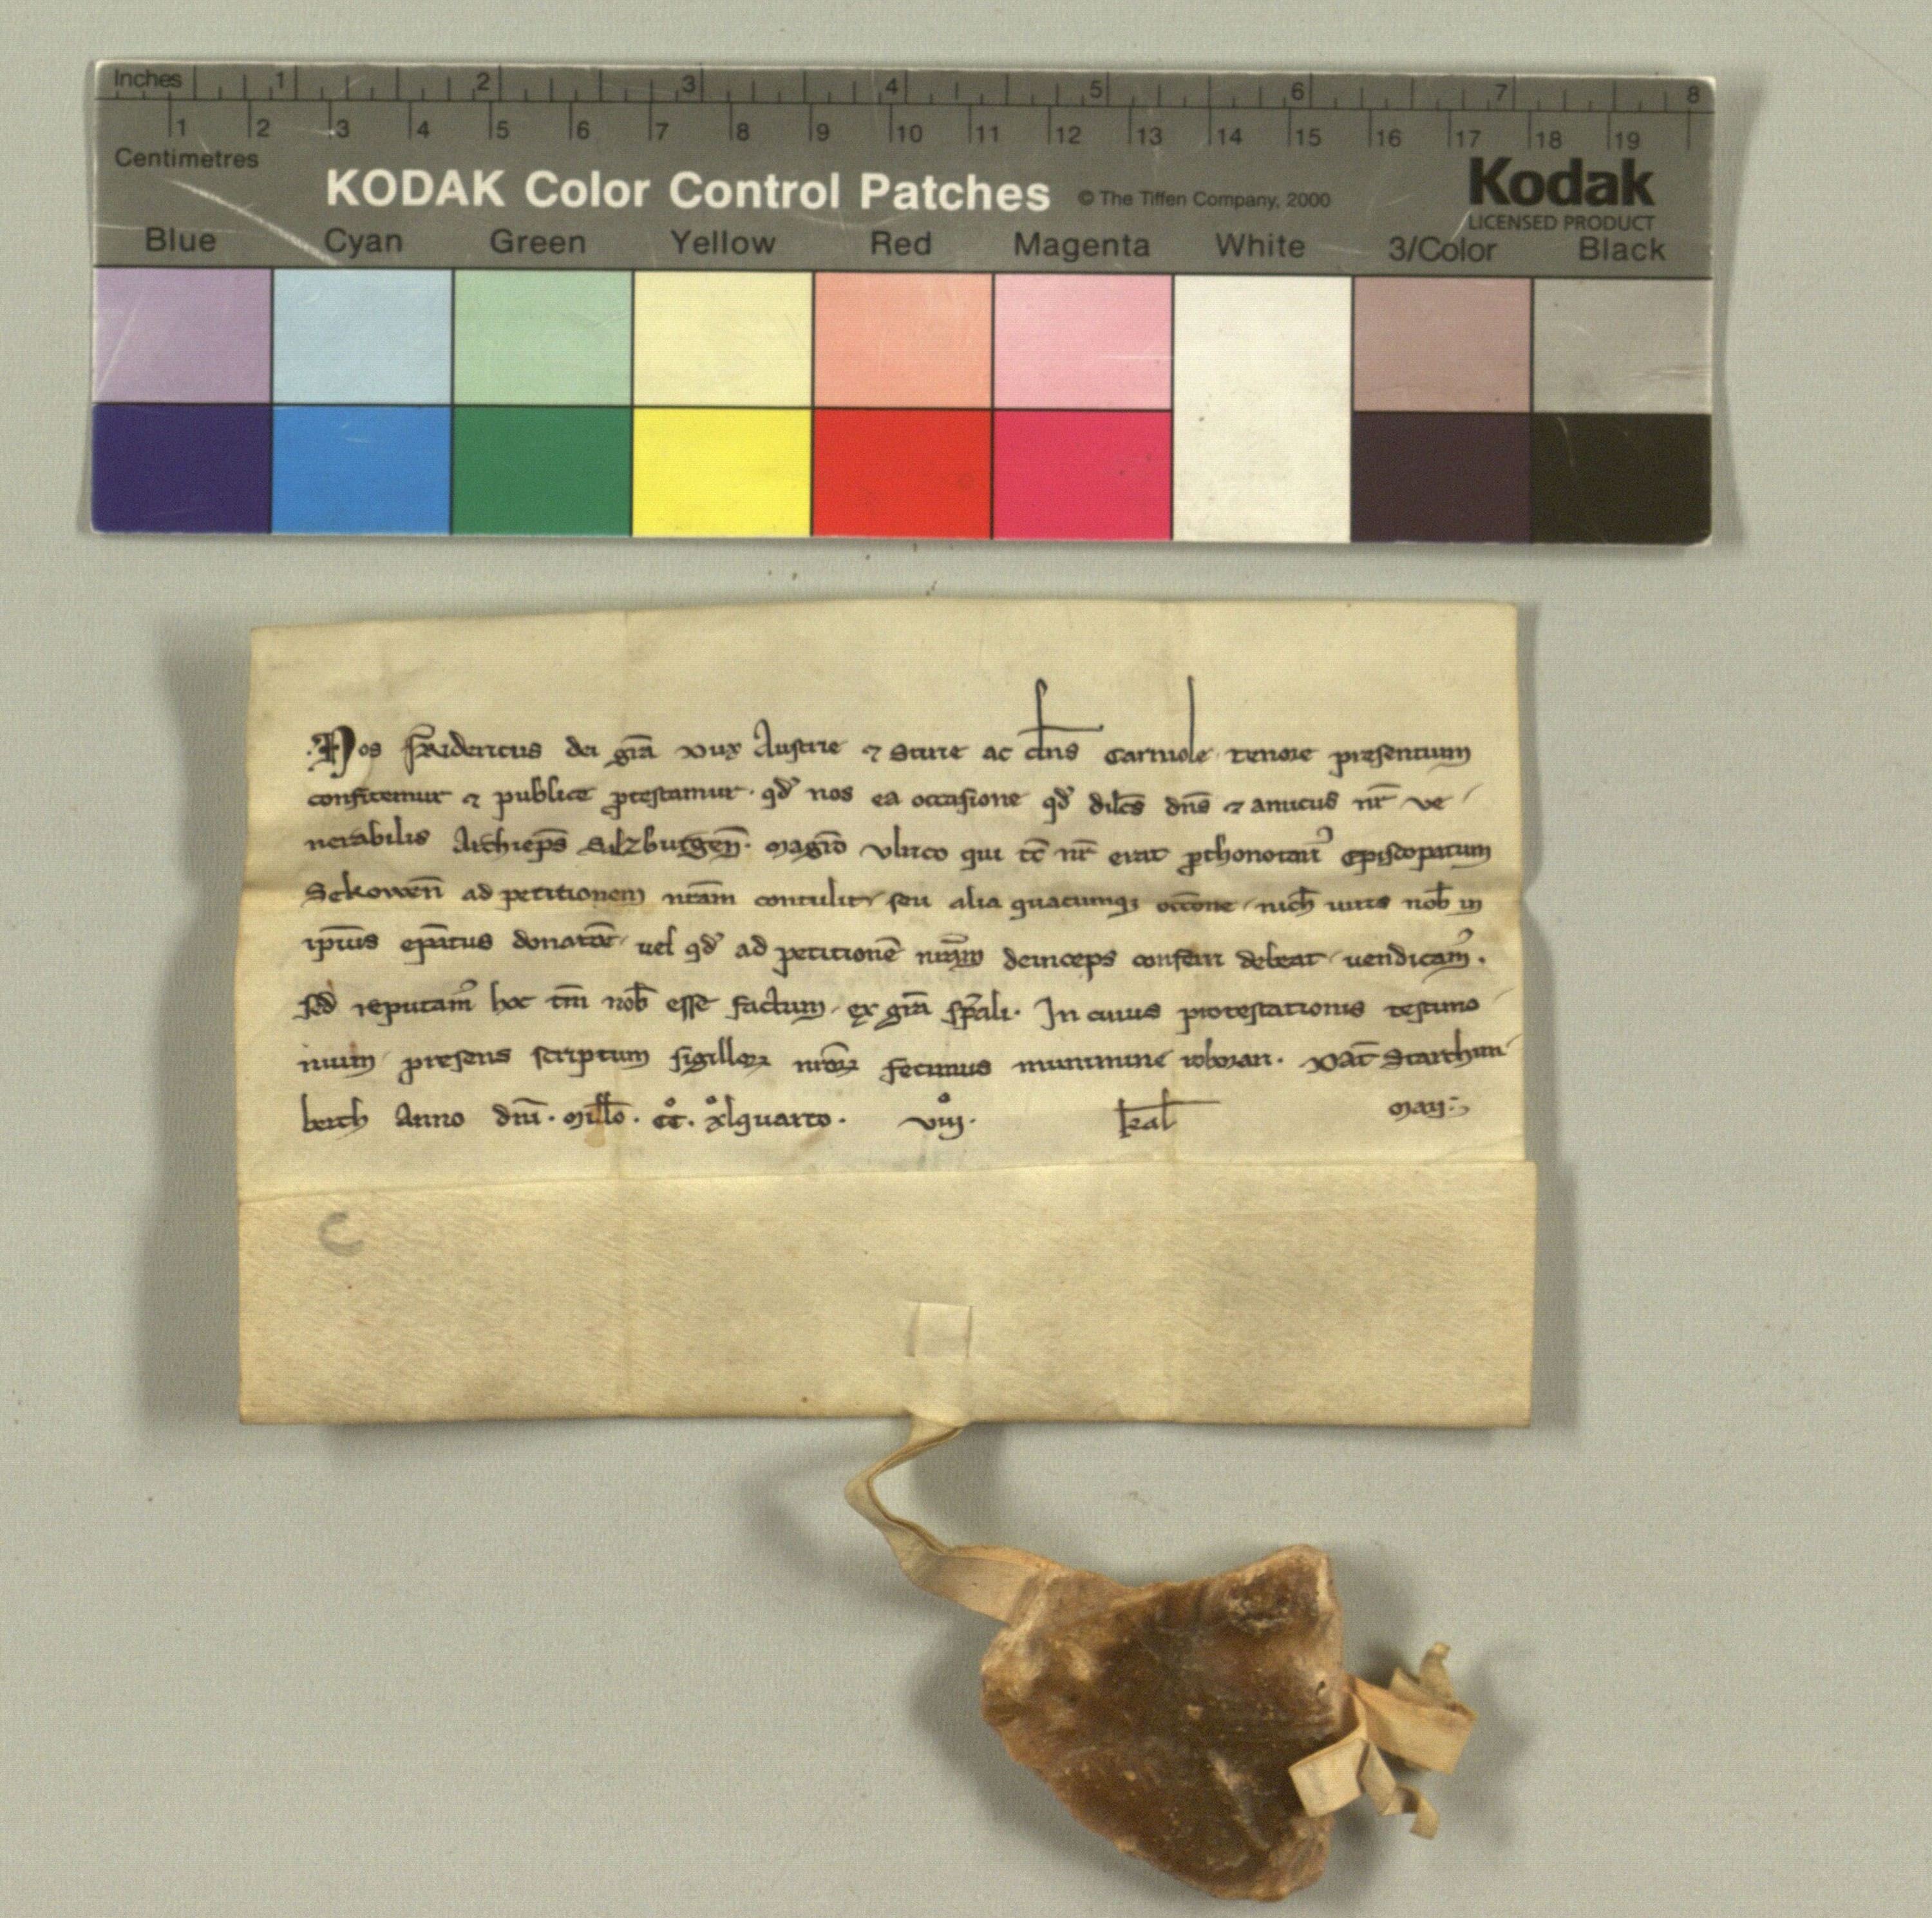 Inches 1 2 3 4 5 6 7 8
1 2 3 4 5 6 7 8 9 10 11 12 13 14 15 16 17 18 19
Centimetres
KODAK Color Control Patches © The Tiffen Company, 2000 Kodak
LICENSED PRODUCT
Blue Cyan Green Yellow Red Magenta White 3/Color Black
Nos Fridericus dei gr̄a Dux Austrie ⁊ Stirie ac dn̄s Carniole tenore presentium
confitemur ⁊ publice ꝓtestamur · qd̛ nos ea occasione qd̛ dilc̄s dn̄s ⁊ amicus nr̄ ve
nerabilis Archiep̄s Salzburgen̄ · magr̄o Vlrico qui tc̄ nr̄ erat ꝓthonotari᾽ episcopatum
Sekowen̄ ad petitionem nr̄am contulit seu alia quacumqꝫ occōne nich̄ iuris nob̄ in
ip̄ius ep̄atus donatōe uel qd̛ ad petitionē nr̄am deinceps conferri debeat uendicam᾽ .
sed reputam᾽ hoc tm̄ nob̄ esse factum ex gr̄a sp̄ali · In cuius protestationis testimo
nium presens scriptum sigilloꝝ nr̄oꝝ fecimus munimine roborari . Dat̄ Starchun
berch Anno dn̄i · Mill̄o · cc̊ · xl̊quarto · viii̊ · kal̄ Maii
C